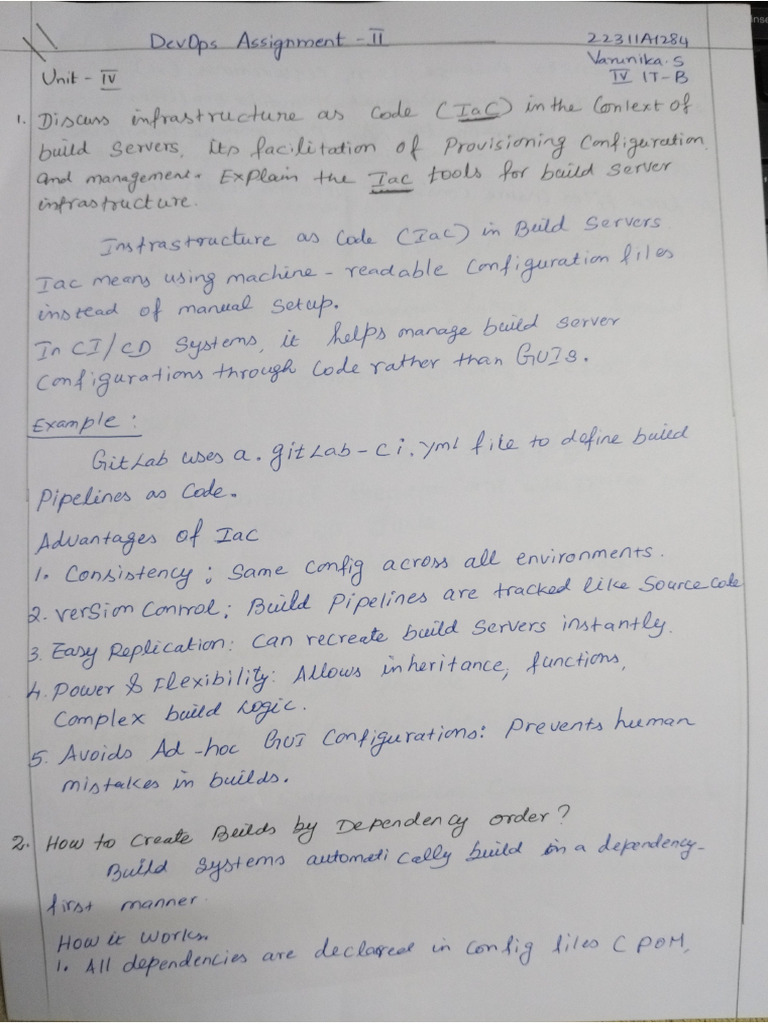 DevOps Assignment - II
22311A1284
Varunika.S
IV IT-B
Unit - IV
1. Discuss infrastructure as Code (IaC) in the Context of
build Servers, its facilitation of Provisioning Configuration,
and management. Explain the Iac tools for build server
infrastructure.
Instrastructure as Code (IaC) in Build Servers
Iac means using machine - readable Configuration files
instead of manual Setup.
In CI/CD Systems, it helps manage build server
Configurations through Code rather than GUIs.
Example :
GitLab uses a .gitLab-ci.yml file to define build
Pipelines as Code.
Advantages of Iac
1. Consistency ; Same Config across all environments.
2. version Control ; Build Pipelines are tracked like Source Code
3. Easy Replication: Can recreate build Servers instantly.
4. Power & Flexibility: Allows inheritance, functions,
Complex build Logic.
5. Avoids Ad-hoc GUI Configurations: Prevents human
mistakes in builds.
2. How to Create Builds by Dependency order?
Build Systems automatically build in a dependency-
first manner.
How it Works.
1. All dependencies are declared in config files ( POM,